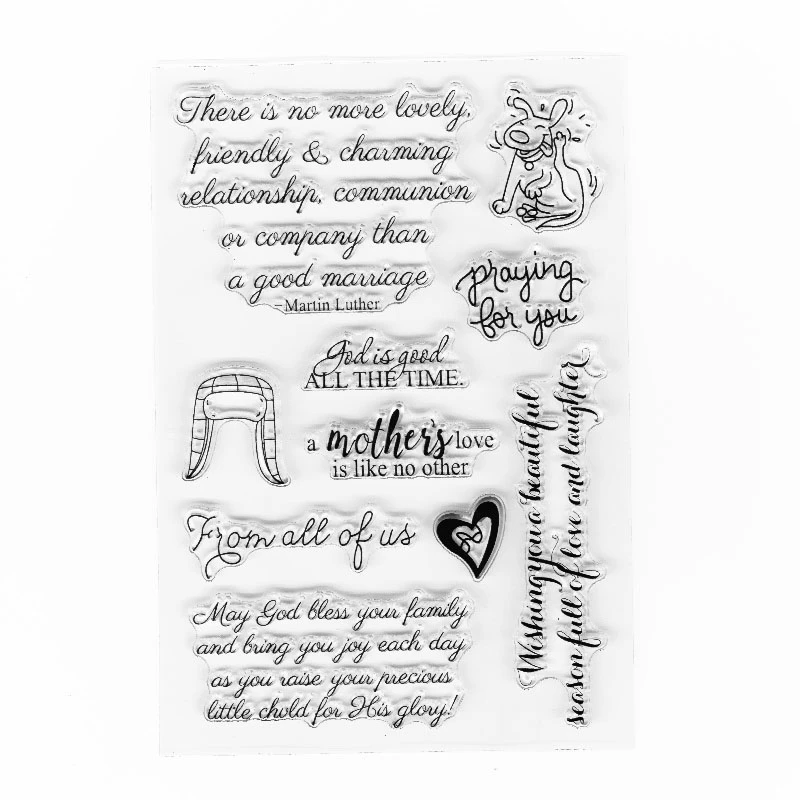 There is no more lovely,
friendly & charming
relationship, communion
or company than
a good marriage
-Martin Luther
praying
for you
God is good
ALL THE TIME.
a mother's love
is like no other
From all of us
May God bless your family
and bring you joy each day
as you raise your precious
little child for His glory!
Wishing you a beautiful
season full of love and laughter